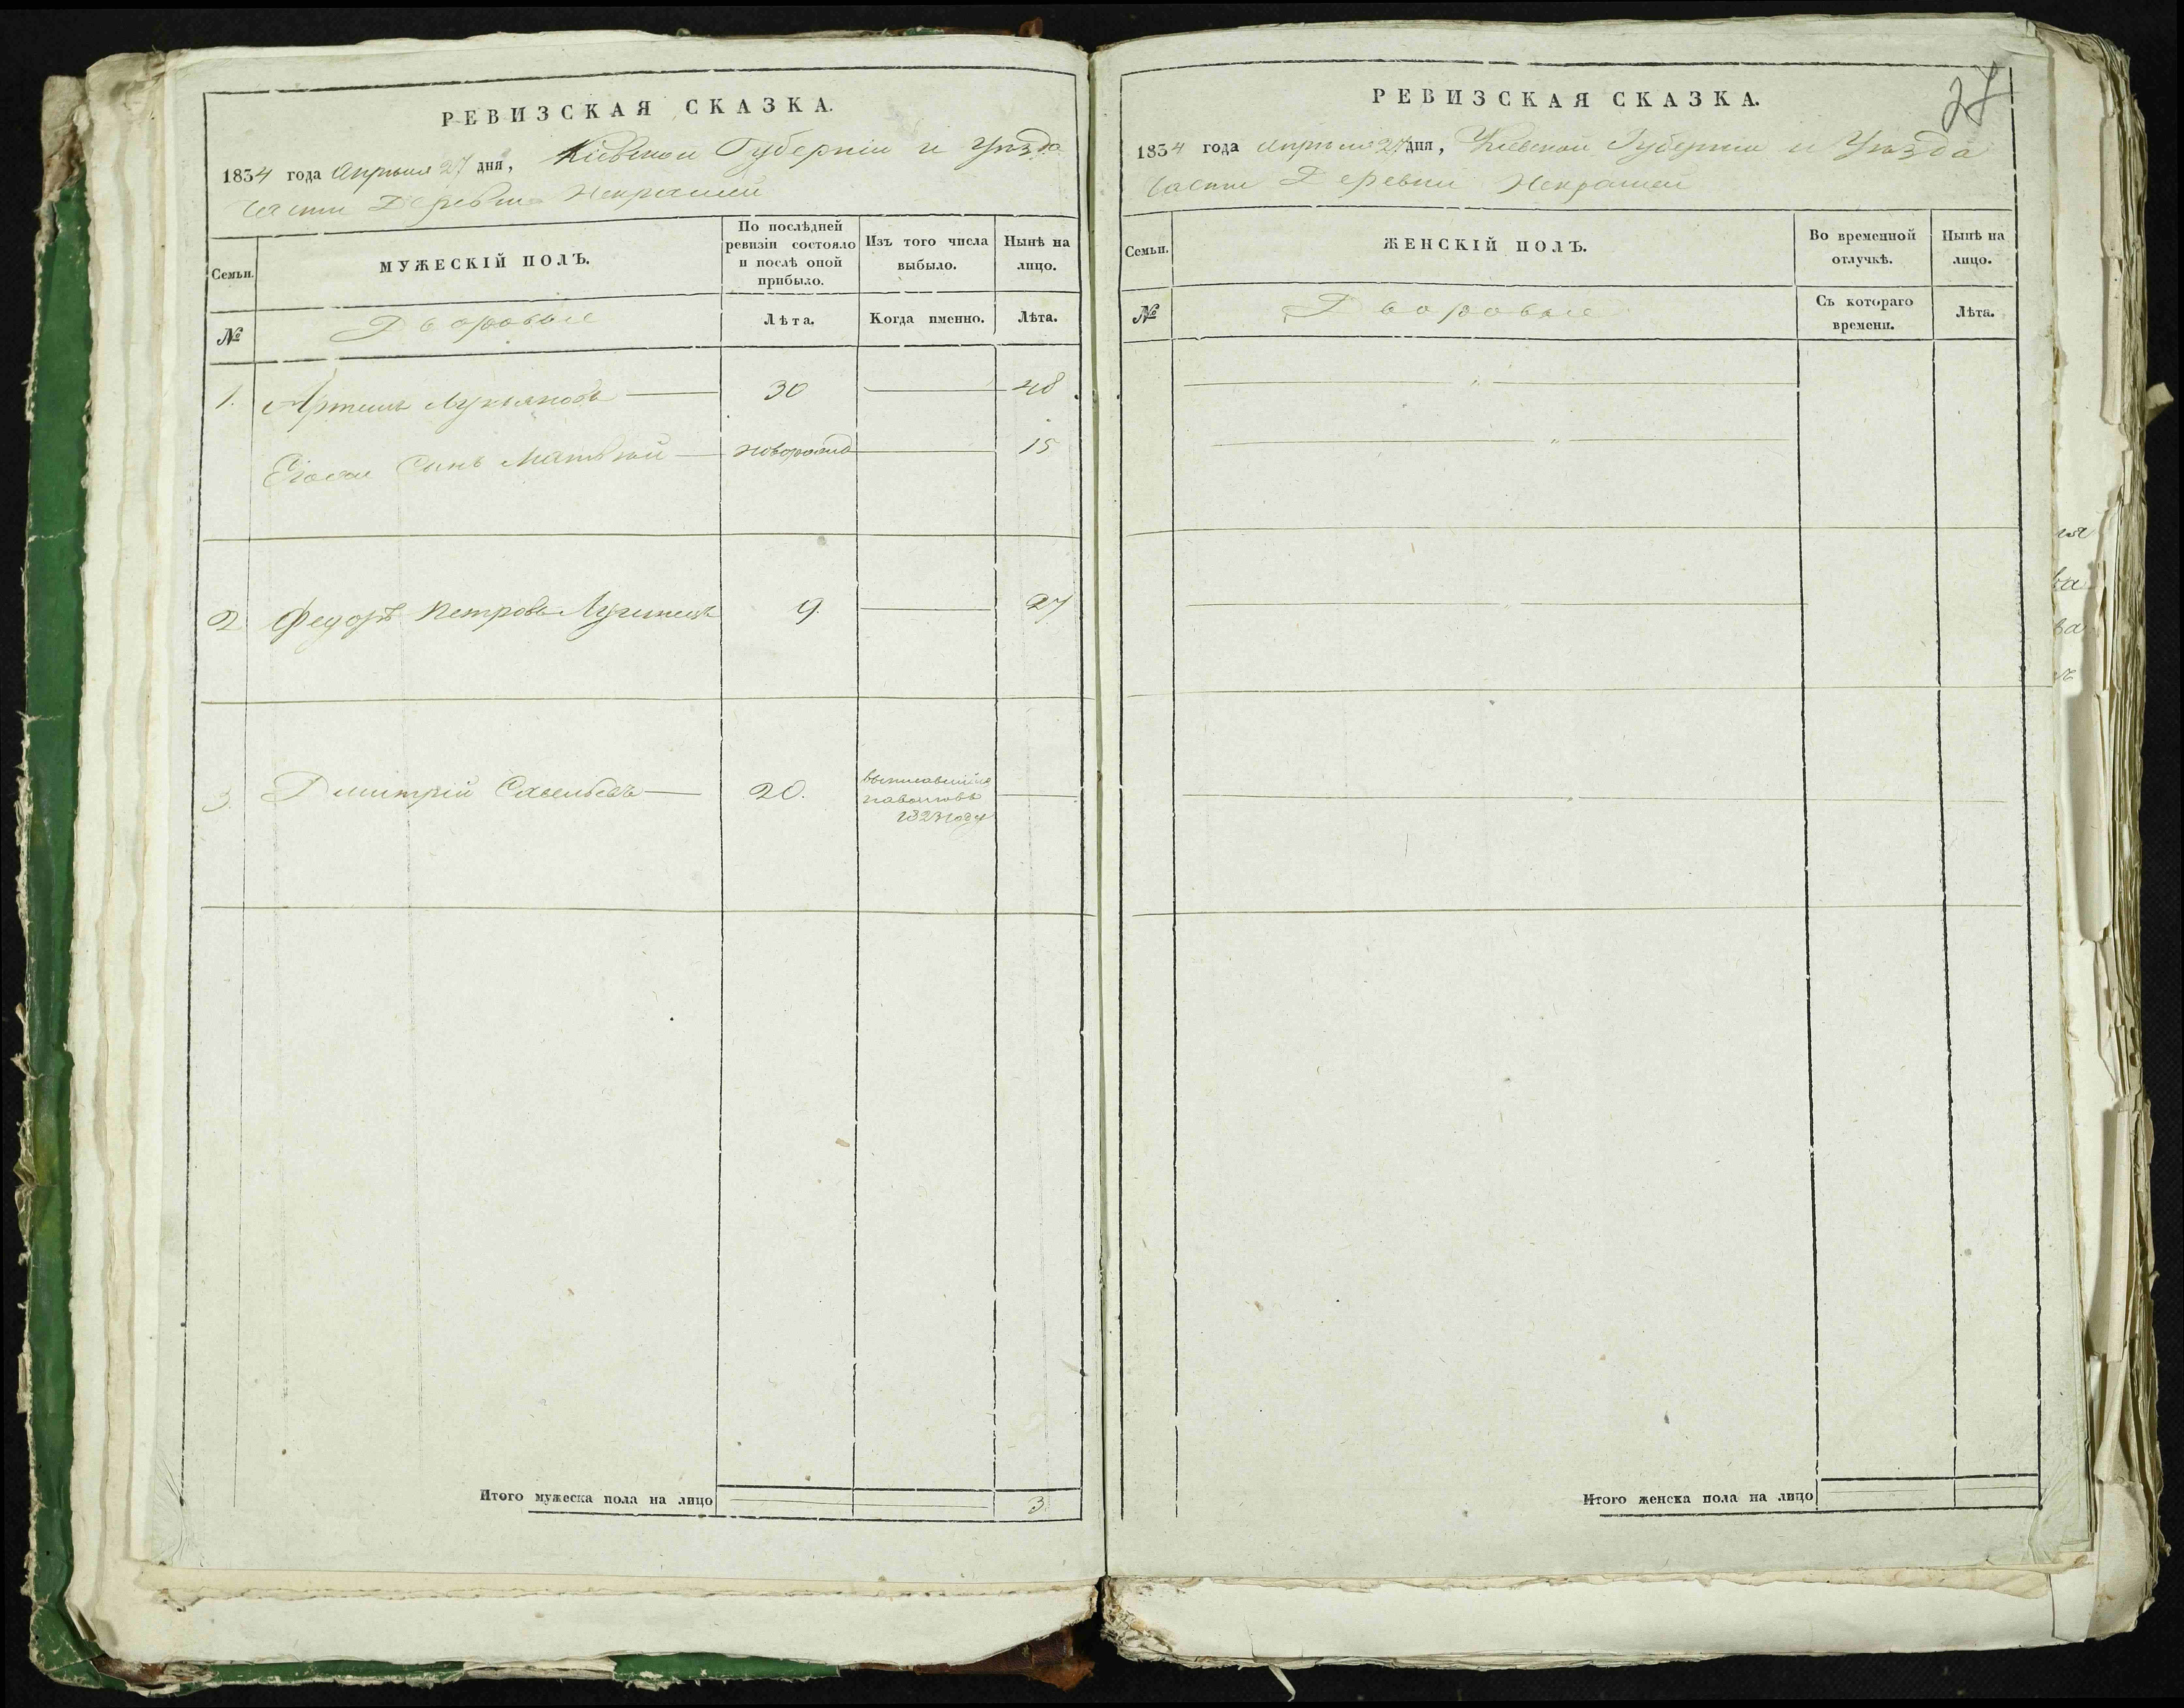 РЕВИЗСКАЯ СКАЗКА.
1834 года Апреля 27 дня, Кіевской Губерніи и Уезда
части Деревни Некрашей
Семьи.
МУЖЕСКІЙ ПОЛЪ.
По послѣдней ревизіи состояло и послѣ оной прибыло.
Изъ того числа выбыло.
Нынѣ на лицо.
№
Дворовые
Лѣта.
Когда именно.
Лѣта.
1. Артемъ Лукьяновъ 30 48
Его Сынъ Матвѣй новорожд 15
2 Федоръ Петровъ 9. 27
3. Дмитрій Савельевъ 20. 1823 году
Итого мужеска пола на лицо 3.
27
РЕВИЗСКАЯ СКАЗКА.
1834 года Апреля 27 дня, Кіевской Губерніи и Уезда
части Деревни Некрашей
Семьи.
ЖЕНСКІЙ ПОЛЪ.
Во временной отлучкѣ.
Нынѣ на лицо.
№
Дворовые
Съ котораго времени.
Лѣта.
Итого женска пола на лицо